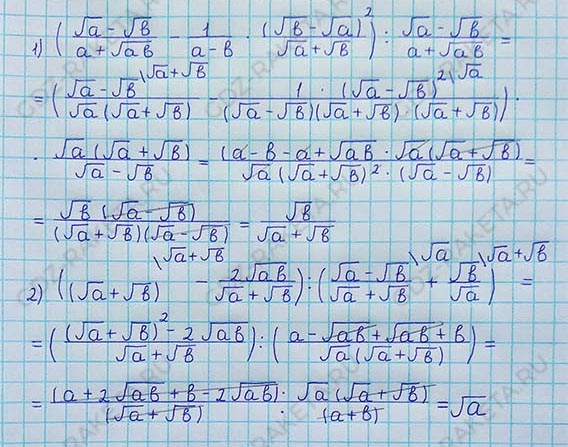 1) ( (√a - √b)/(a + √ab) - 1/(a - b) · (√b - √a)²/(√a + √b) ) : (√a - √b)/(a + √ab) =
= ( (√a - √b)/(√a (√a + √b)) \√a + √b - (1 · (√a - √b)²)/((√a - √b)(√a + √b) · (√a + √b)) \√a ) ·
· (√a (√a + √b))/(√a - √b) = ((a - b - a + √ab · √a (√a + √b))/(√a (√a + √b)² · (√a - √b)) =
= (√b (√a - √b))/((√a + √b)(√a - √b)) = √b/(√a + √b)
2) ( (√a + √b) \√a + √b - 2√ab/(√a + √b) ) : ( (√a - √b)/(√a + √b) \√a + √b/√a \√a + √b ) =
= ( ((√a + √b)² - 2√ab)/(√a + √b) ) : ( (a - √ab + √ab + b)/(√a (√a + √b)) ) =
= (a + 2√ab + b - 2√ab)/(√a + √b) · (√a (√a + √b))/(a + b) = √a
GDZ-RAKETA.RU